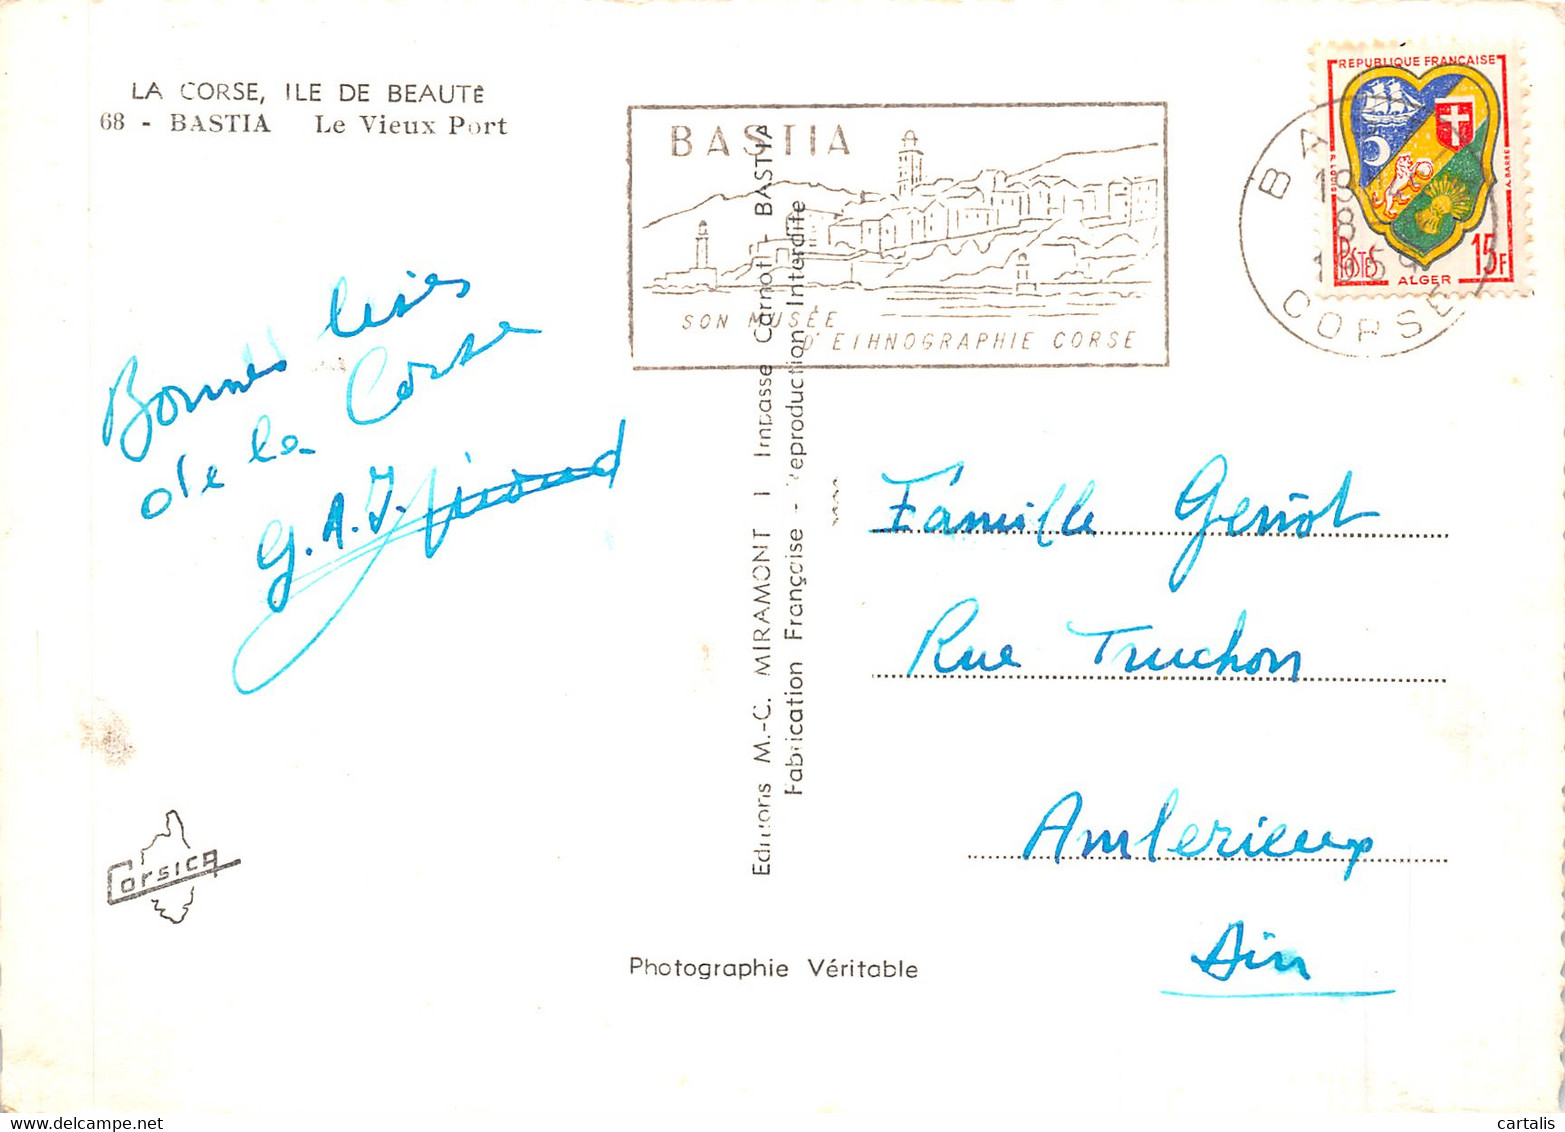 LA CORSE, ILE DE BEAUTÉ
68 - BASTIA Le Vieux Port
Bonnes bises
de la Corse
G. A. J. Giroud
Corsica
Editions M.-C. MIRAMONT 1 Impasse Carnot - BASTIA
Fabrication Française - Reproduction Interdite
Photographie Véritable
BASTIA
SON MUSÉE
D'ETHNOGRAPHIE CORSE
CORSE
RÉPUBLIQUE FRANÇAISE
POSTES
15F
ALGER
Famille Geniot
Rue Truchon
Amberieux
Ain
cartalis